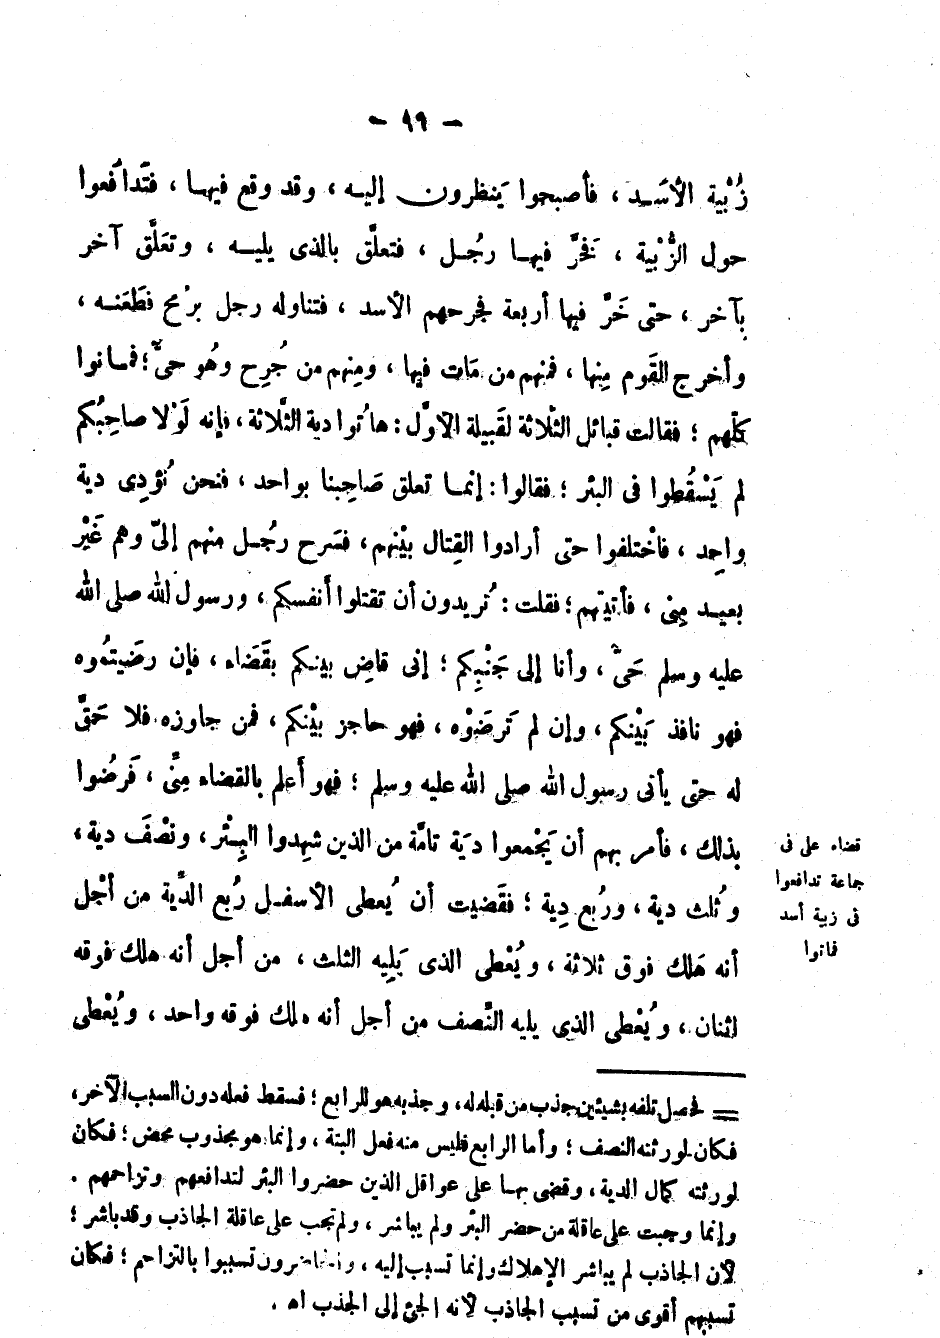 — ٩٩ —
زُبْية الأسَد ، فأصبحوا يَنظرون إليه ، وقد وقع فيها ، فتَدافَعوا
حول الزُّبْية ، فَخرَّ فيها رجُل ، فتعلَّق بالذى يليه ، وتعَلَّق آخر
بآخر ، حتى خَرَّ فيها أربعة فجرحهم الأسد ، فتناوله رجل برُمح فطَعَنه ،
وأخرج القَوم مِنها ، فمنهم من مَات فيها ، ومِنهم من جُرِح وهُو حىٌّ ؛ فماتوا
كلّهم ؛ فقالت قبائل الثّلاثة لقَبيلة الأوَّل : هاتُوا دية الثَّلاثة ، فإنه لَوْلا صاحِبُكم
لم يَسْقُطوا فى البئر ؛ فقالوا : إنما تعلق صَاحِبنا بواحد ، فنحن نُؤدِى دية
واحِد ، فاخْتلفوا حتى أرادوا القِتال بيْنهم ، فسَرح رجُل منهم إلىّ وهم غَيْر
بعيد مِنى ، فأتيتهم ؛ فقلت : تُريدون أن تقتلوا أنفسكم ، ورسول الله صلى الله
عليه وسلم حَىٌّ ، وأنا إلى جَنْبِكم ؛ إنى قاضٍ بينكم بقَضَاء ، فإن رضَيتمُوه
فهو نافذ بَيْنكم ، وإن لم تَرضَوْه ، فهو حاجز بيْنكم ، فمن جاوزه فلا حَقَّ
له حتى يأتى رسول الله صلى الله عليه وسلم ؛ فهو أعَلم بالقضاء مِنِّى ، فَرضُوا
بذلك ، فأمر بهم أن يَجْمعوا ديَة تامَّة من الذين شهِدوا البِئْر ، ونصْفَ دية ،
وثُلث دية ، ورُبع دِية ؛ فقَضيت أن يُعطى الأسفل رُبع الدِّية من أجْل
أنه هَلك فوق ثلاثة ، ويُعْطى الذى يَلِيه الثلث ، من أجل أنه هلك فوقه
اثنان ، ويُعْطى الذى يليه النَّصف من أجل أنه هلك فوقه واحد ، ويُعْطى
قضاء على فى
جماعة تدافعوا
فى زبية أسد
فماتوا
= فحصل تلفه بشيئين جذب من قبله له ، وجذبه هو للرابع ؛ فسقط فعله دون السبب الآخر ،
فكان لورثته النصف ؛ وأما الرابع فليس منه فعل البتة ، وإنما هو مجذوب محض ؛ فكان
لورثته كمال الدية ، وقضى بها على عواقل الذين حضروا البئر لتدافعهم وتزاحمهم .
وإنما وجبت على عاقلة من حضر البئر ولم يباشر ، ولم تجب على عاقلة الجاذب وقد باشر ؛
لأن الجاذب لم يباشر الإهلاك وإنما تسبب إليه ، والحاضرون تسببوا بالتزاحم ؛ فكان
تسببهم أقوى من تسبب الجاذب لأنه الجئ إلى الجذب اه .